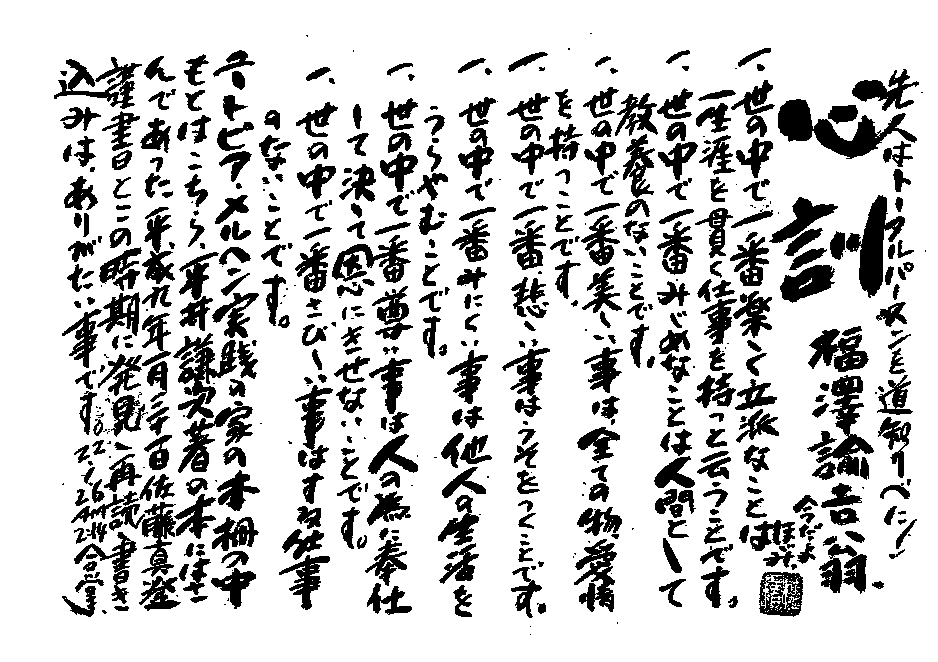 先人はトータルパースンを道知りべに
心訓
福澤諭吉公翁
今だよ
一、世の中で一番楽しく立派なことは
一生涯を貫く仕事を持つと云うことです。
一、世の中で一番みじめなことは人間として
教養のないことです。
一、世の中で一番美しい事は全ての物愛情
を持つことです。
一、世の中で一番悲しい事はうそをつくことです。
一、世の中で一番みにくい事は他人の生活を
うらやむことです。
一、世の中で一番尊い事は人の為に奉仕
して決して恩にきせないことです。
一、世の中で一番さびしい事はする仕事
のないことです。
ユートピア・メルヘン実践の家の本棚の中
もとはこちら、平井謙次著の本にはさ
んであった平成九年一月二十百佐藤真澄
謹書日とこの時期に発見し再読書き
込みは、ありがたい事です。